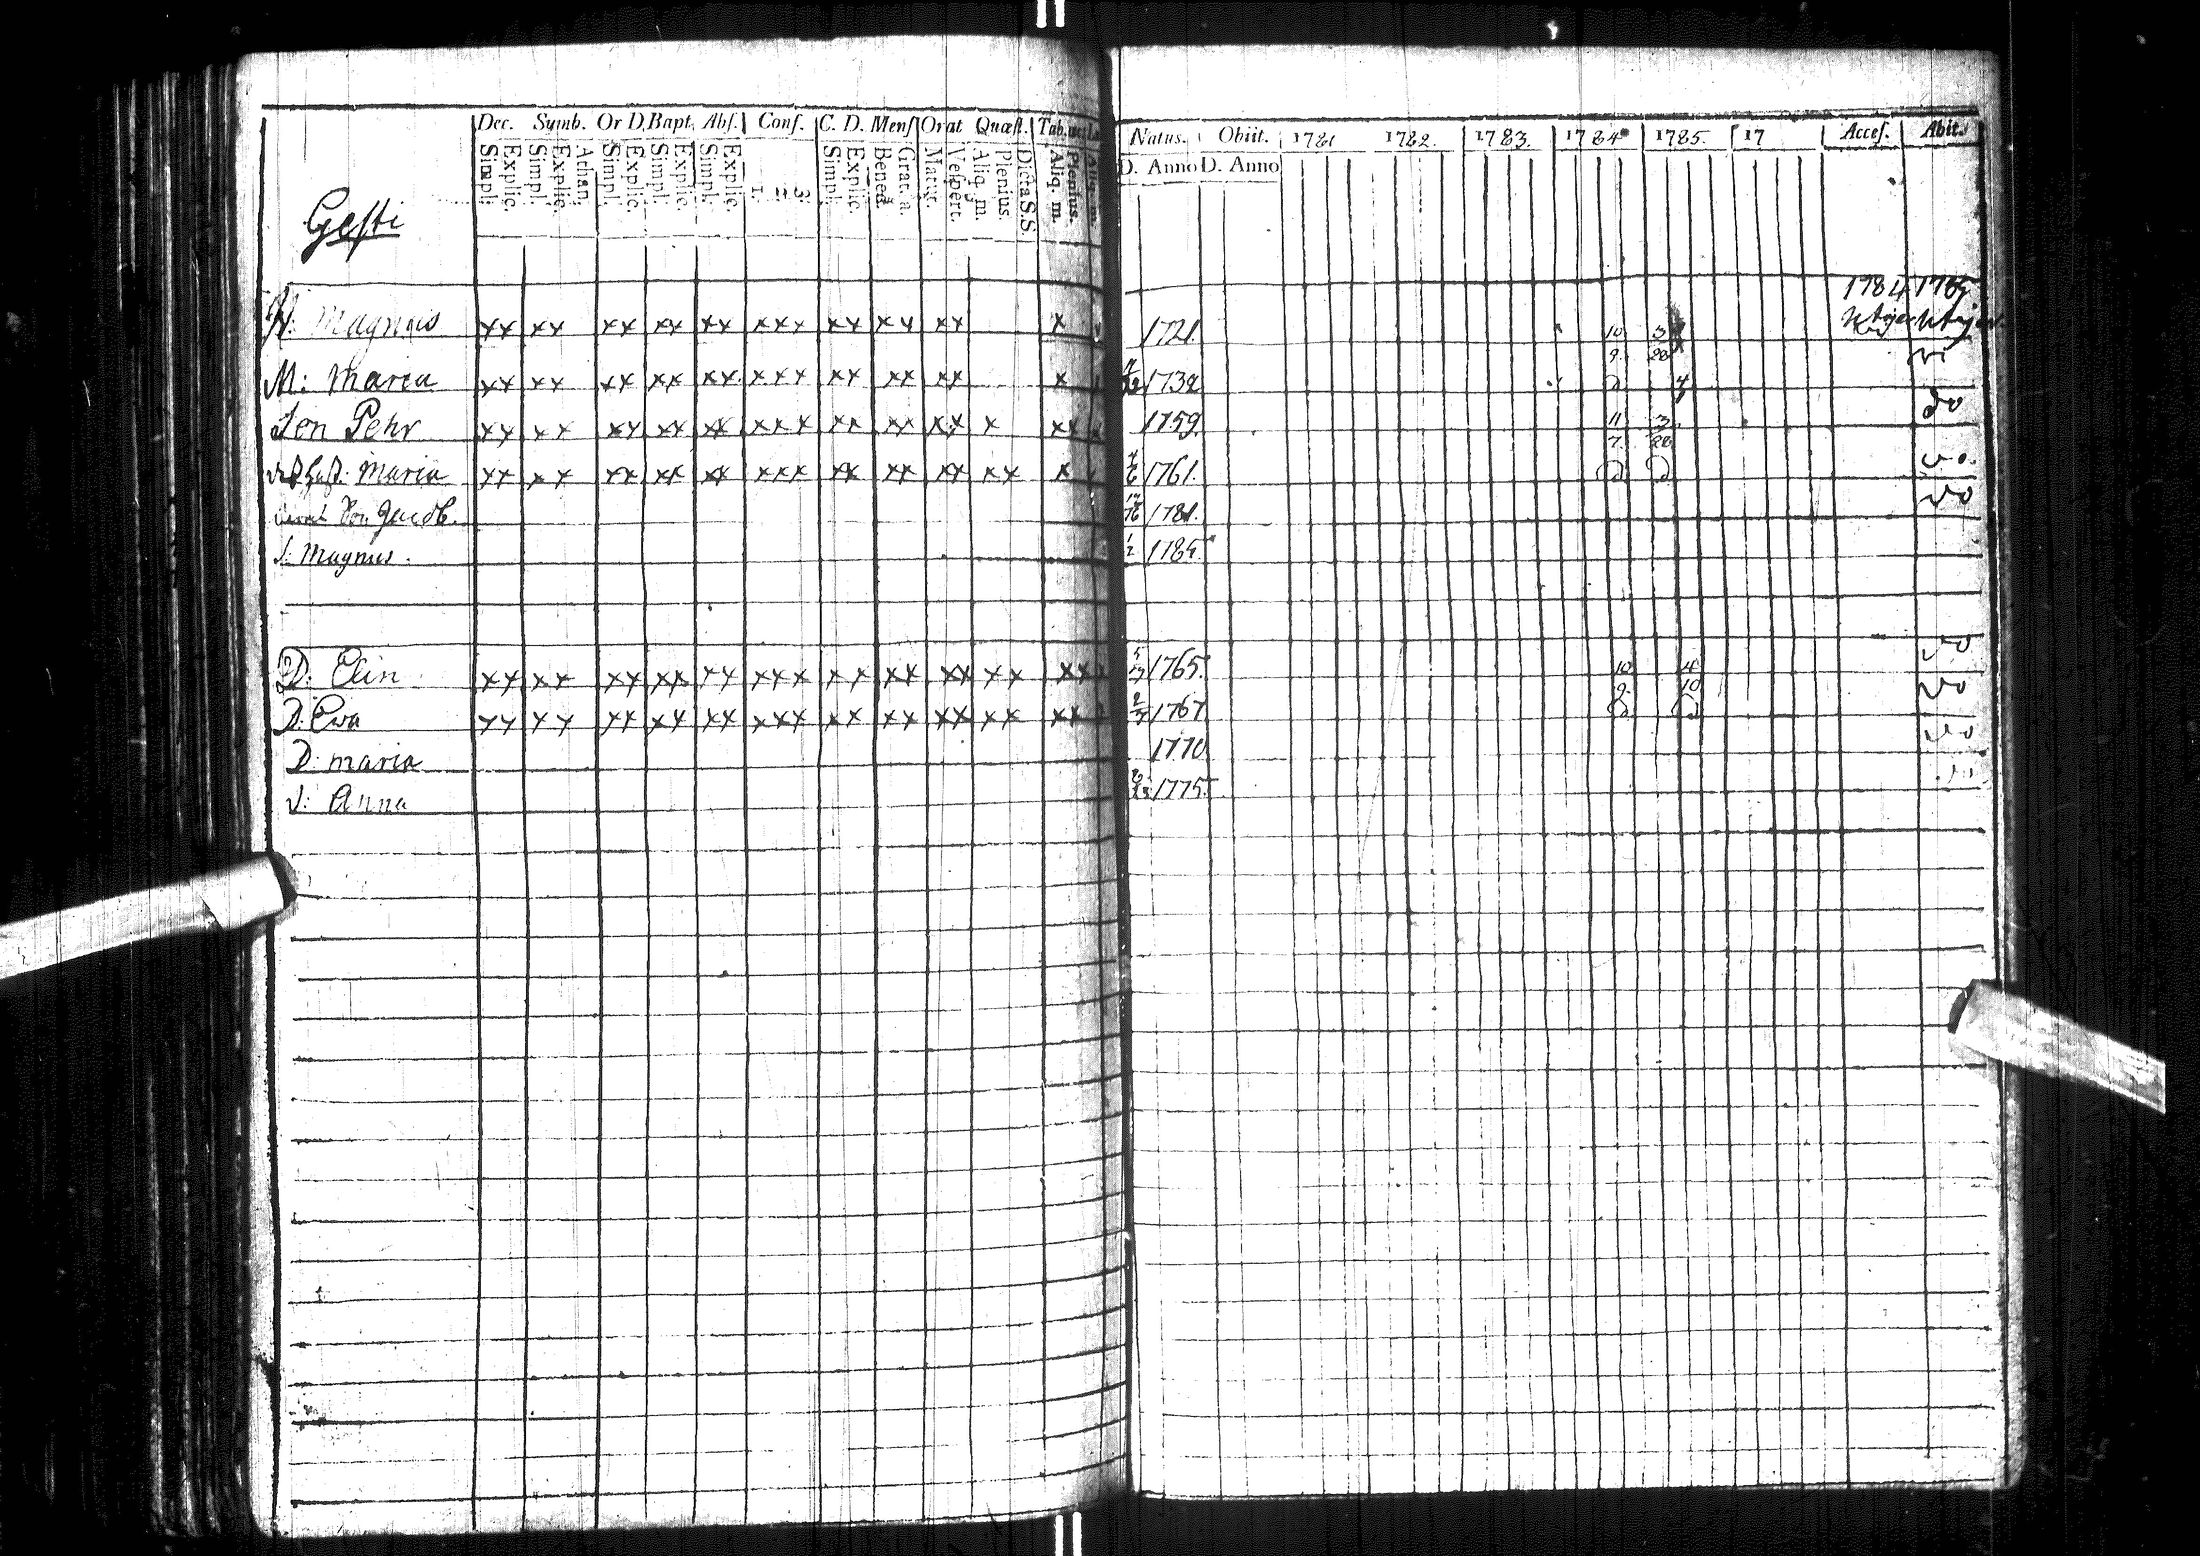 Dec. Symb. Or D. Bapt. Abſ. Conf. C. D. Menſ Orat Quæſt. Tab.
Simpl. Explic. Simpl. Explic. Athan. Simpl. Explic. Simpl. Explic. Simpl. Explic. 1. 2. 3. Simpl. Explic. Bened. Grat. a. Matut. Veſpert. Aliq. m. Plenius. Dicta S.S. Aliq. m. Plenius. Aliq. m.
Natus. Obiit. 1781 1782. 1783. 1784 1785. 17 Acceſ. Abit.
D. Anno D. Anno
Geſti
1784 1785
Magnus xx xx xx xx xx xxx xx xx xx x 1721. 10 3
9. 28
M: Maria xx xx xx xx xx xxx xx xx xx x 1732 4
Pehr xx xx xx xx xx xxx xx xx xx x xx 1759. 11 3 do
7. 28
Maria xx xx xx xx xx xxx xx xx xx xx x 1761.
Jacob. 1781.
S: Magnus. 1/2 1785.
D: Elin xx xx xx xx xx xxx xx xx xx xx xx 1765. 10 4
9. 10
D: Eva xx xx xx xx xx xxx xx xx xx xx xx 1767
D: maria 1770
Anna 1775.